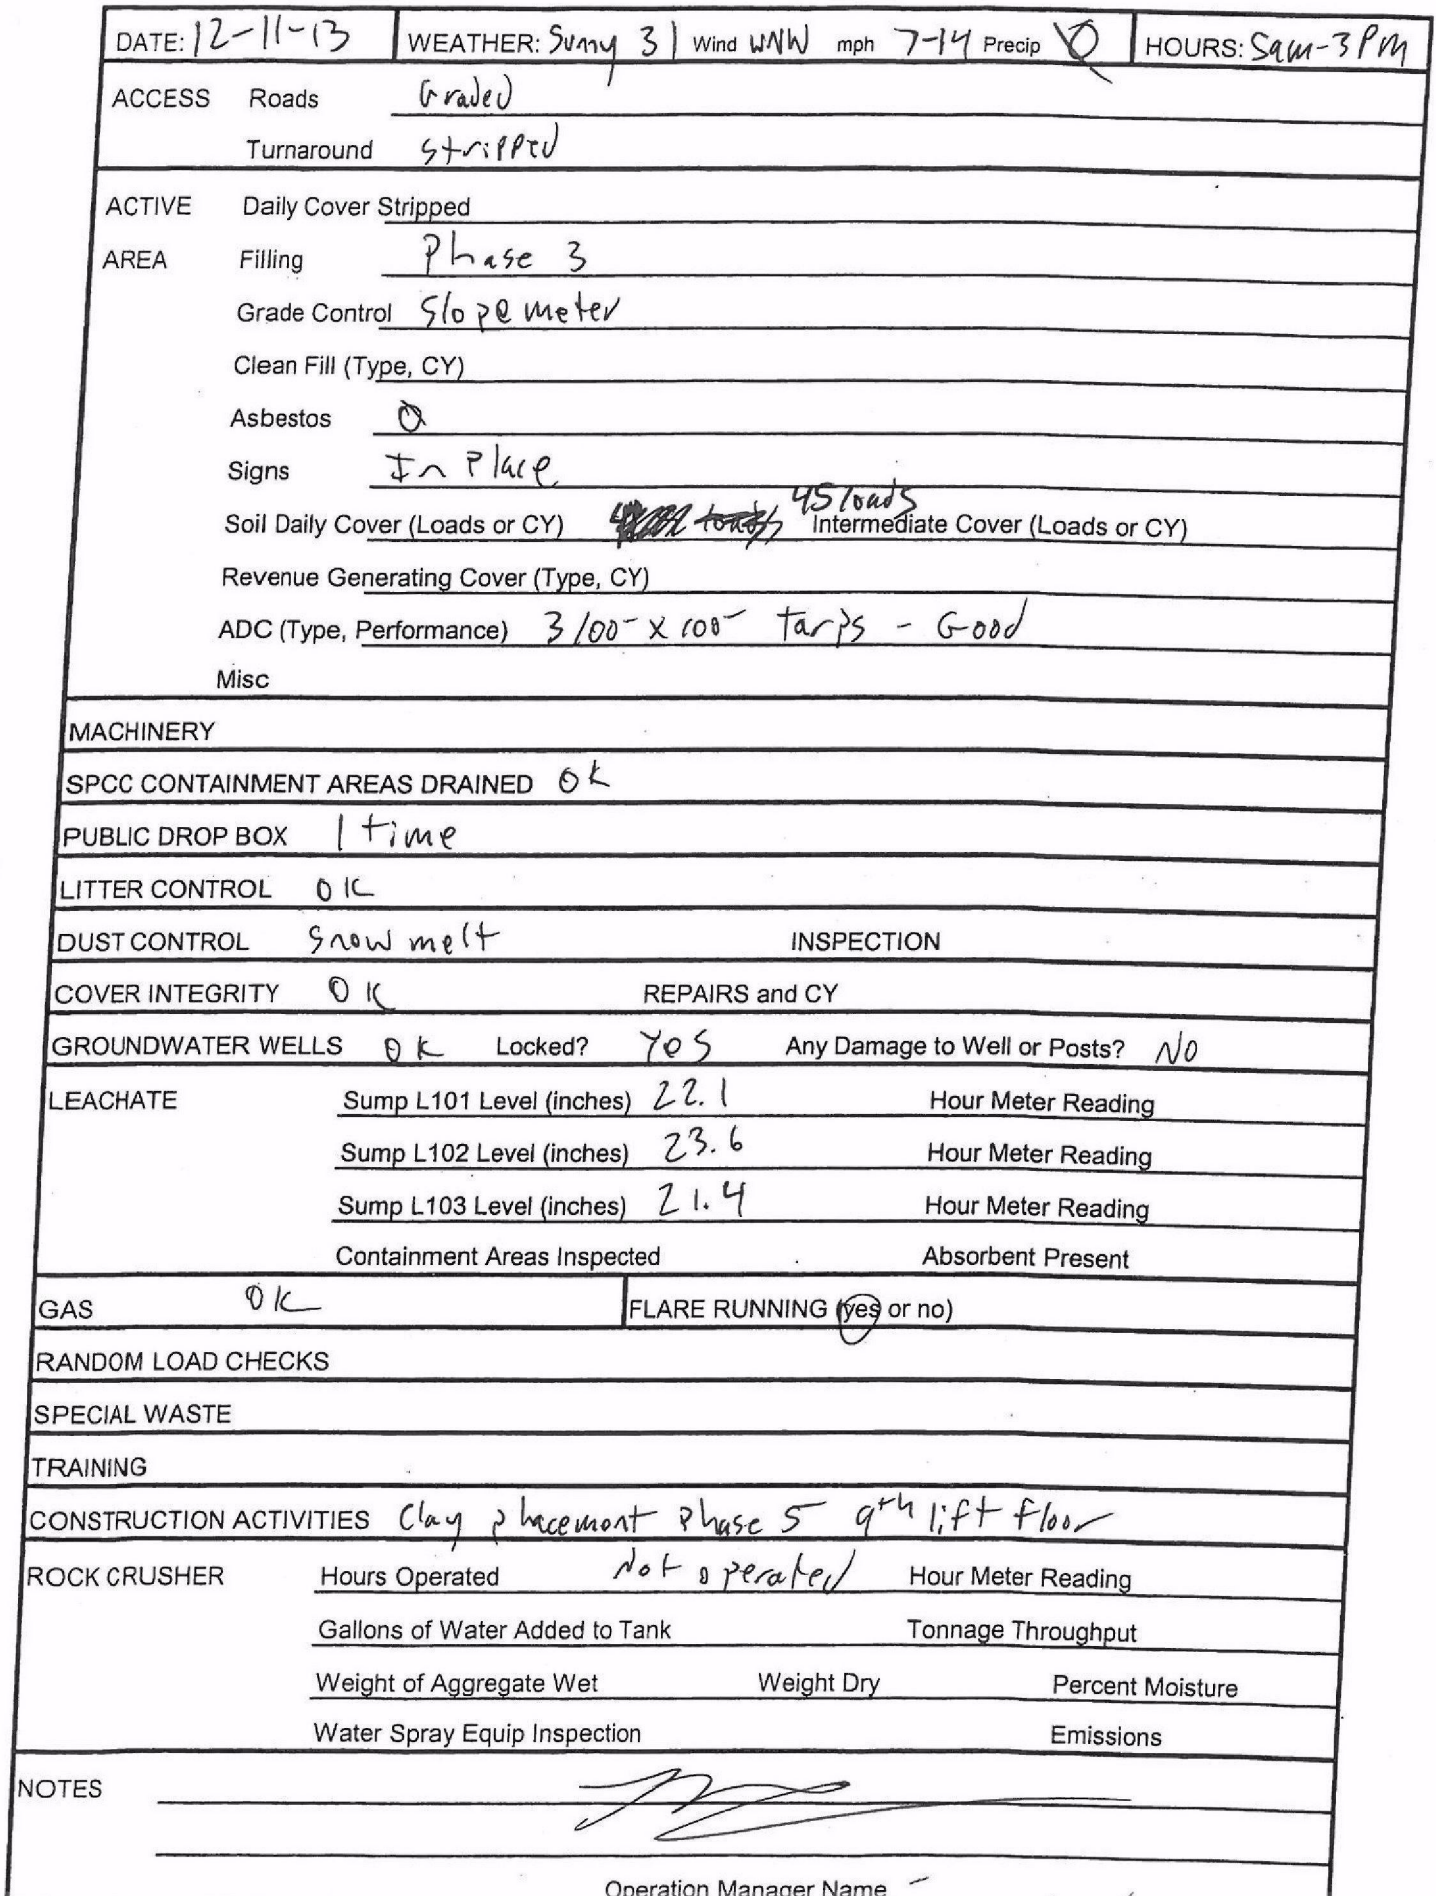 DATE: 12-11-13 WEATHER: Sunny 31 Wind WNW mph 7-14 Precip 0 HOURS: 5am-3PM
ACCESS Roads Graded
Turnaround stripped
ACTIVE Daily Cover Stripped
AREA Filling Phase 3
Grade Control Slope meter
Clean Fill (Type, CY)
Asbestos 0
Signs In Place
45 loads
Soil Daily Cover (Loads or CY) Intermediate Cover (Loads or CY)
Revenue Generating Cover (Type, CY)
ADC (Type, Performance) 3 100- x 100- Tarps - Good
Misc
MACHINERY
SPCC CONTAINMENT AREAS DRAINED OK
PUBLIC DROP BOX 1 time
LITTER CONTROL OK
DUST CONTROL Snow melt INSPECTION
COVER INTEGRITY OK REPAIRS and CY
GROUNDWATER WELLS OK Locked? Yes Any Damage to Well or Posts? NO
LEACHATE Sump L101 Level (inches) 22.1 Hour Meter Reading
Sump L102 Level (inches) 23.6 Hour Meter Reading
Sump L103 Level (inches) 21.4 Hour Meter Reading
Containment Areas Inspected Absorbent Present
GAS OK FLARE RUNNING (yes or no)
RANDOM LOAD CHECKS
SPECIAL WASTE
TRAINING
CONSTRUCTION ACTIVITIES Clay placement Phase 5 9th lift floor
ROCK CRUSHER Hours Operated Not operated Hour Meter Reading
Gallons of Water Added to Tank Tonnage Throughput
Weight of Aggregate Wet Weight Dry Percent Moisture
Water Spray Equip Inspection Emissions
NOTES
Operation Manager Name